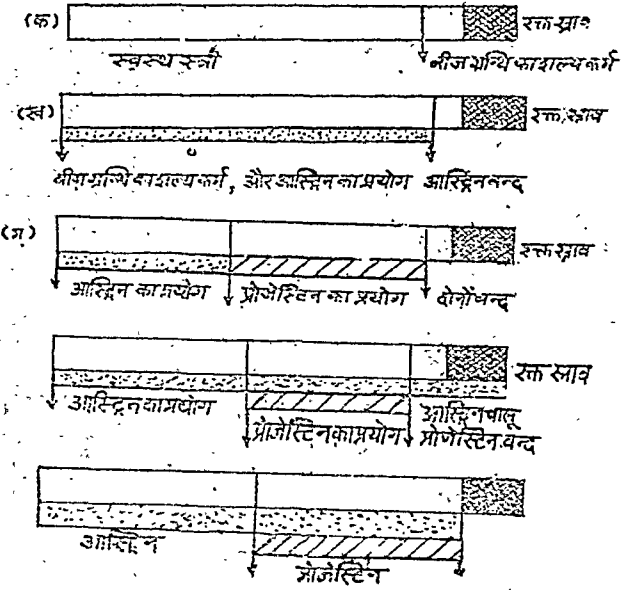 (क) रक्त स्राव
स्वस्थ स्त्री बीज ग्रन्थि का शल्य कर्म
(ख) रक्त स्राव
बीज ग्रन्थि का शल्य कर्म, और आस्ट्रिन का प्रयोग आस्ट्रिन बन्द
(ग) रक्त स्राव
आस्ट्रिन का प्रयोग प्रोजेस्टिन का प्रयोग दोनों बन्द
रक्त स्राव
आस्ट्रिन का प्रयोग प्रोजेस्टिन का प्रयोग आस्ट्रिन चालू
प्रोजेस्टिन बन्द
आस्ट्रिन
प्रोजेस्टिन